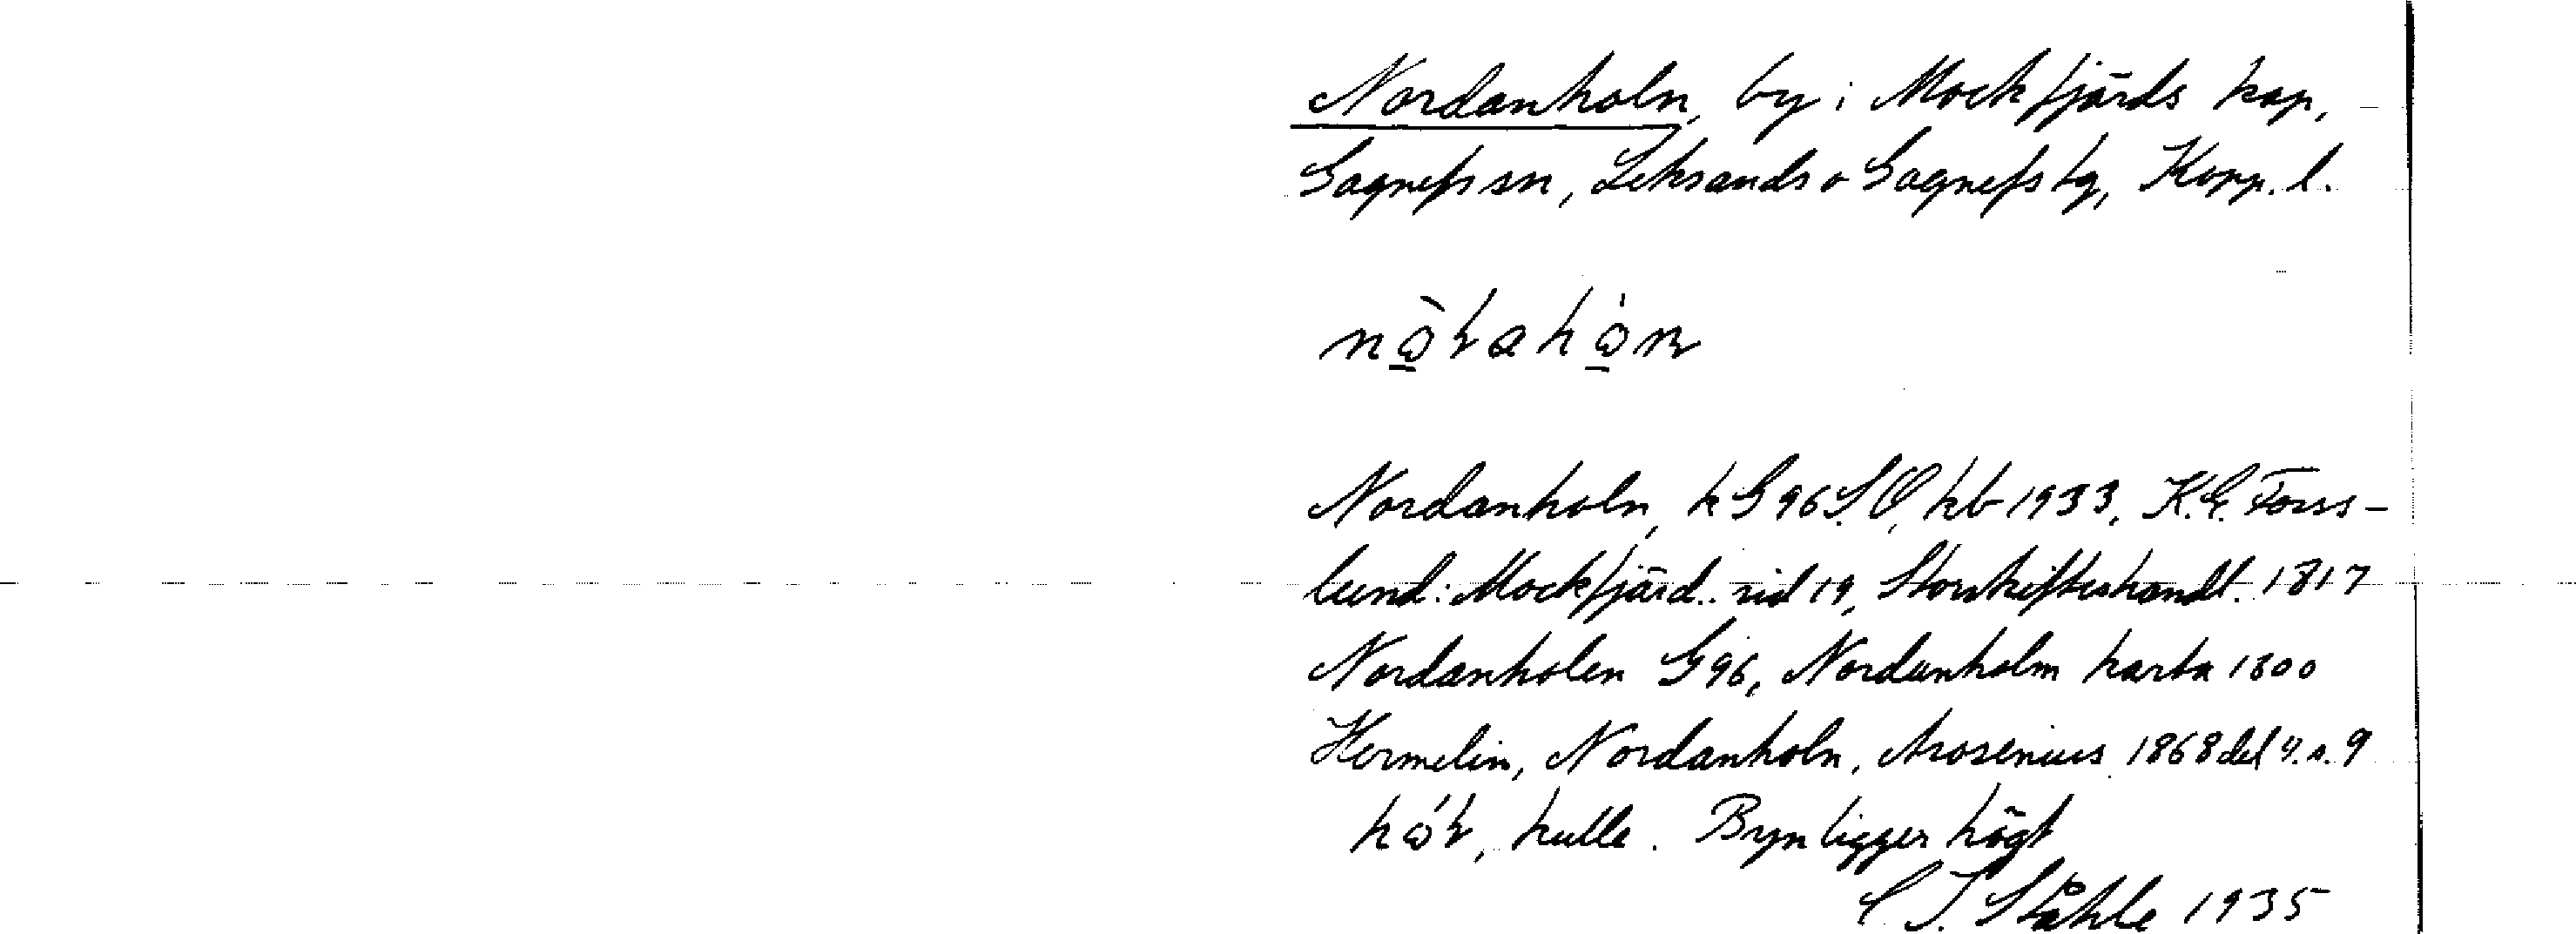 Nordanholn, by i Mockfjärds kap,
Gagnefs sn, Leksands o Gagnefs tg, Kopp. l.
Nordanholn, k G96 S.O, kb 1933, K.E. Forss-
lund: Mockfjärd.. sid 19, Storskifteshandl. 1817
Nordanholen G96, Nordanholm karta 1800
Hermelin, Nordanholn, Arosenius 1868 del 4. s. 9
kulle. Byn ligger högt
C I. Ståhle 1935